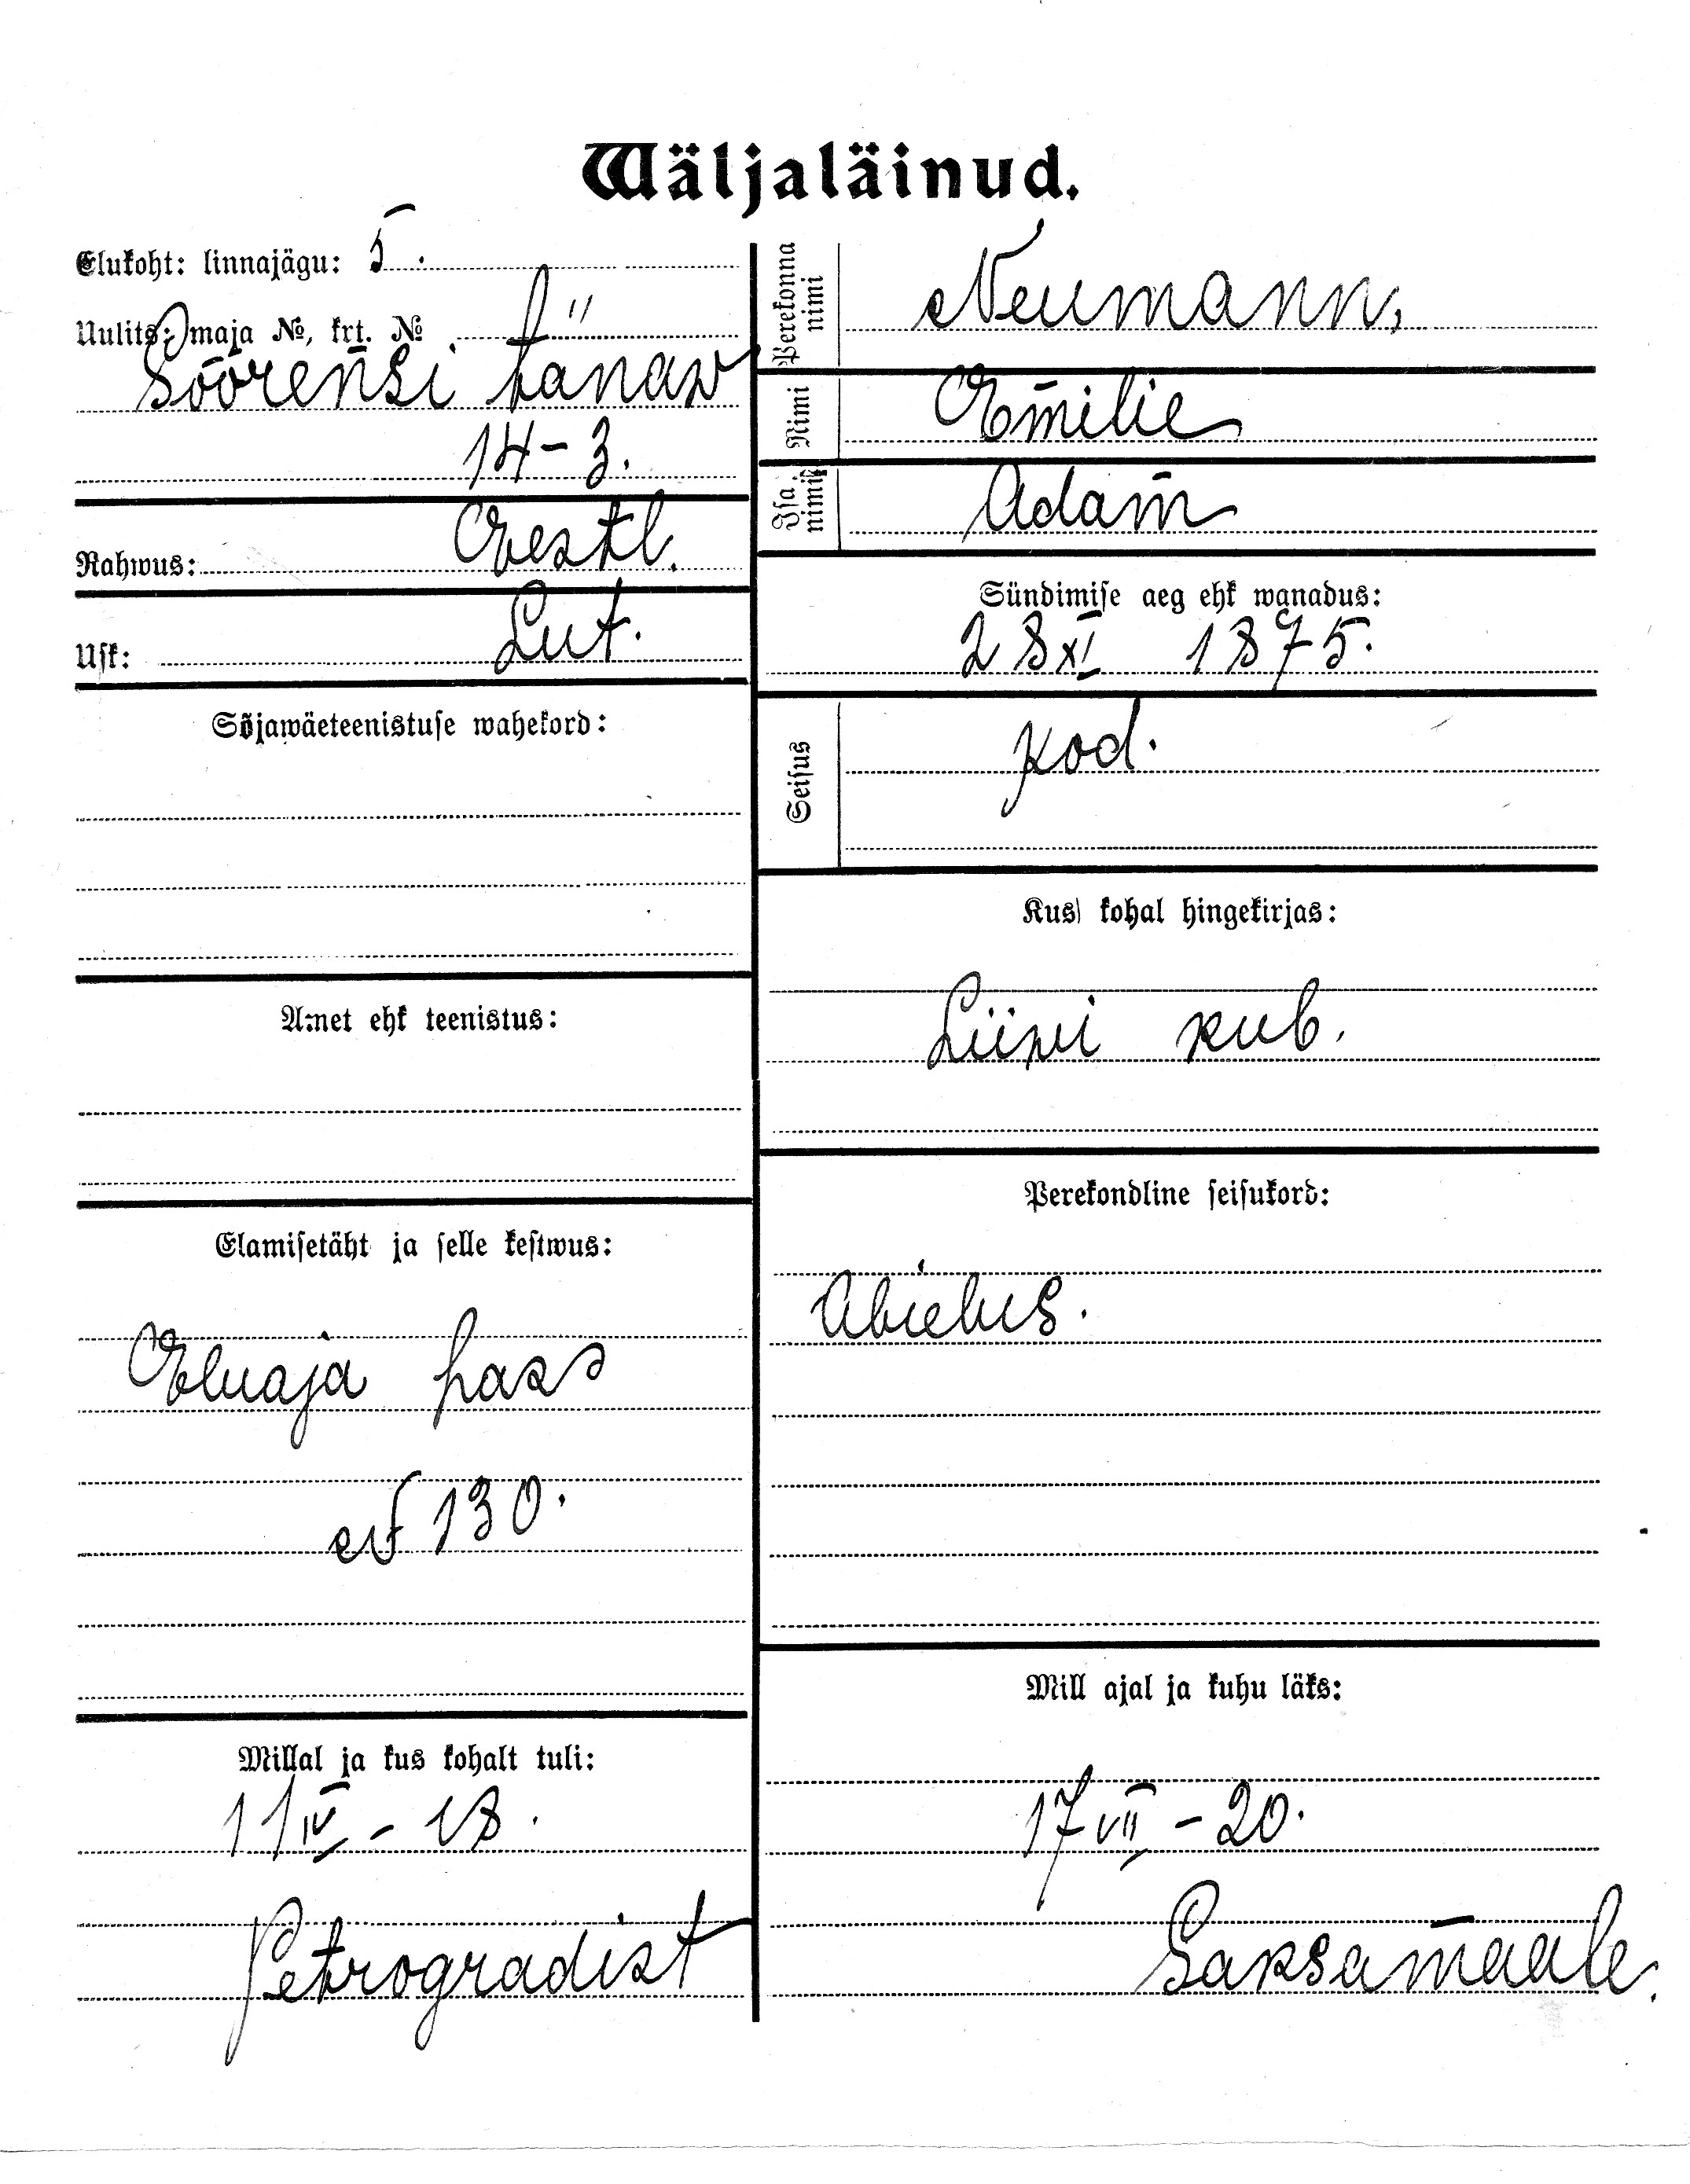 Wäljaläinud.
Elukoht: linnajägu: 5.
Uulits, maja №, krt. №
Söörensi tänaw
14-3.
Rahwus: Eestl.
Usk: Lut.
Sõjawäeteenistuse wahekord:
Amet ehk teenistus:
Elamisetäht ja selle kestwus:
Eluaja pass
№ 130.
Millal ja kus kohalt tuli:
11 IV - 18.
Petrogradist
Perekonna nimi
Neumann,
Nimi
Emilie
Isa nimi
Adam
Sündimise aeg ehk wanadus:
28 XI 1875.
Seisus
kod.
Kus kohal hingekirjas:
Liiwi kub.
Perekondline seisukord:
Abielus.
Mill ajal ja kuhu läks:
17 VII - 20.
Saksamaale.